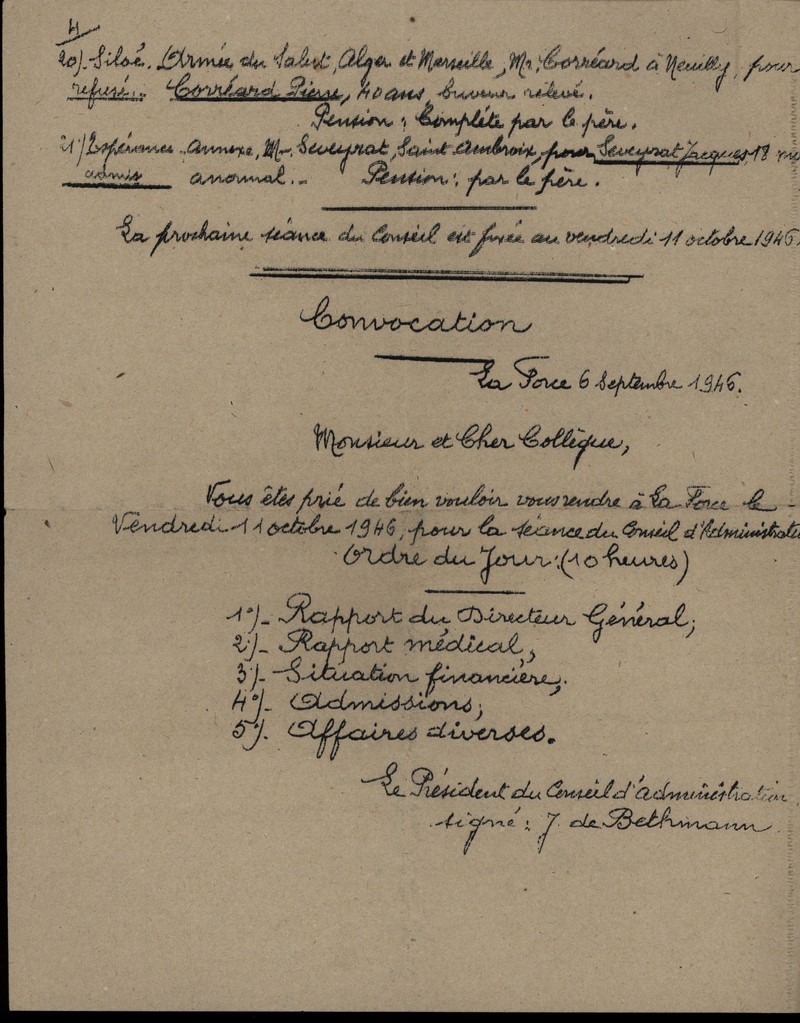 4
20)- Siloé. Armée du Salut, Alger et Marseille, Mr. Corréard à Neuilly, pour
refusé:- Corréard Pierre, 40 ans, buveur relevé.
Pension: Complète par le père.
21°) Espérance Annexe, Mr. Seveyrat, Saint Ambroix, pour Seveyrat Jacques, 18
admis anormal.- Pension: par le père.
La prochaine séance du Conseil est fixée au vendredi 11 octobre 1946.
Convocation
La Force 6 Septembre 1946.
Monsieur et Cher Collègue,
Vous êtes prié de bien vouloir vous rendre à La Force le -
Vendredi 11 octobre 1946, pour la séance du Conseil d'Administrati
Ordre du Jour: (10 heures)
1°)- Rapport du Directeur Général;
2°)- Rapport médical;
3°)- Situation financière;
4°)- Admissions;
5°)- Affaires diverses.
Le Président du Conseil d'administration,
signé: J. de Bethmann